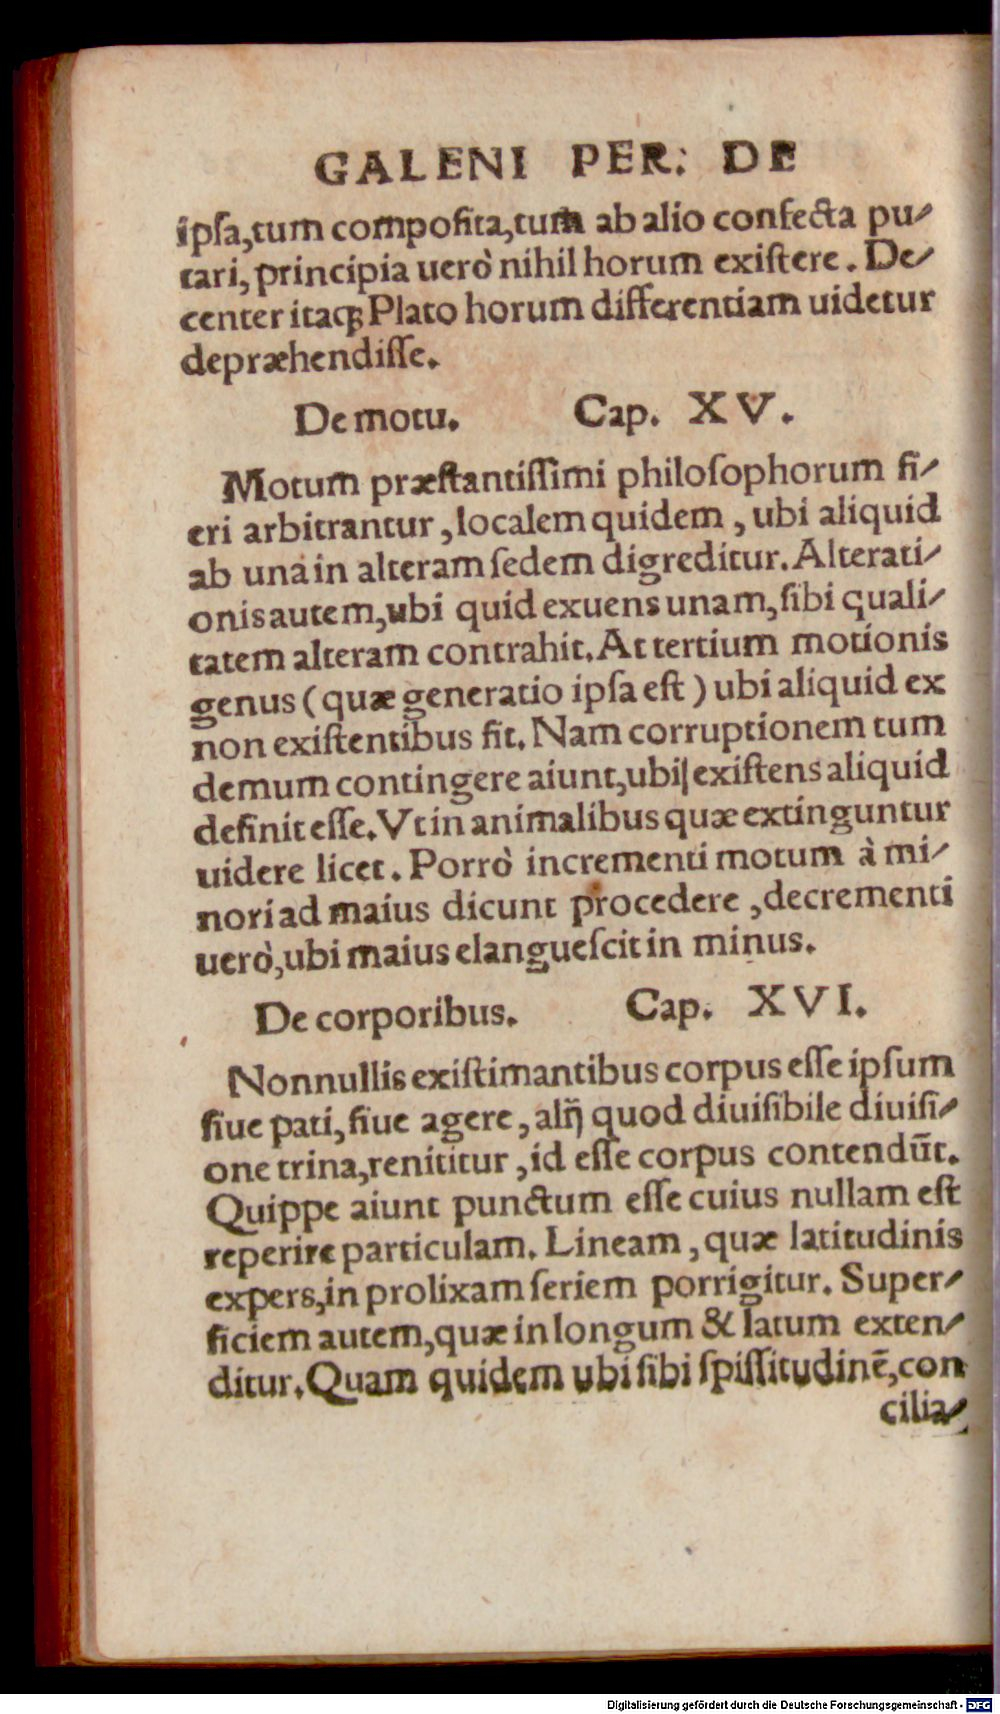 GALENI PER: DE
ipſa,tum compoſita,tum ab alio confecta pu-
tari, principia uerò nihil horum exiſtere. De-
center itaqꝫ Plato horum differentiam uidetur
depræhendiſſe.
De motu. Cap. XV.
Motum præſtantiſſimi philoſophorum fi-
eri arbitrantur, localem quidem, ubi aliquid
ab una in alteram ſedem digreditur. Alterati-
onis autem, ubi quid exuens unam, ſibi quali-
tatem alteram contrahit. At tertium motionis
genus (quæ generatio ipſa eſt) ubi aliquid ex
non exiſtentibus fit. Nam corruptionem tum
demum contingere aiunt, ubi exiſtens aliquid
definit eſſe. Vt in animalibus quæ extinguntur
uidere licet. Porrò incrementi motum à mi-
nori ad maius dicunt procedere, decrementi
uerò, ubi maius elangueſcit in minus.
De corporibus. Cap. XVI.
Nonnullis exiſtimantibus corpus eſſe ipſum
ſiue pati, ſiue agere, alij quod diuiſibile diuiſi-
one trina, renititur, id eſſe corpus contendūt.
Quippe aiunt punctum eſſe cuius nullam eſt
reperire particulam. Lineam, quæ latitudinis
expers, in prolixam ſeriem porrigitur. Super-
ficiem autem, quæ in longum & latum exten-
ditur. Quam quidem ubi ſibi ſpiſſitudinē, con
cilia-
Digitalisierung gefördert durch die Deutsche Forschungsgemeinschaft - DFG